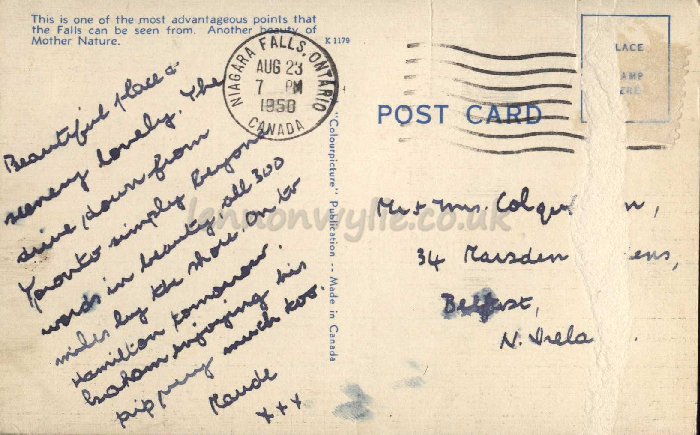 This is one of the most advantageous points that
the Falls can be seen from. Another beauty of
Mother Nature.
K 1179
NIAGARA FALLS, ONTARIO
AUG 23
7 PM
1950
CANADA
LACE
AMP
ERE
POST CARD
Beautiful place &
scenery lovely. The
drive down from
Toronto simply beyond
words in beauty, all 300
miles by the shore. On to
Hamilton tomorrow.
Graham enjoying his
trip very much too.
Maude
xxx
"Colourpicture" Publication -- Made in Canada
Mr & Mrs. Colqu n,
34 Marsden ens,
Belfast,
N. Irela
lennonwylie.co.uk